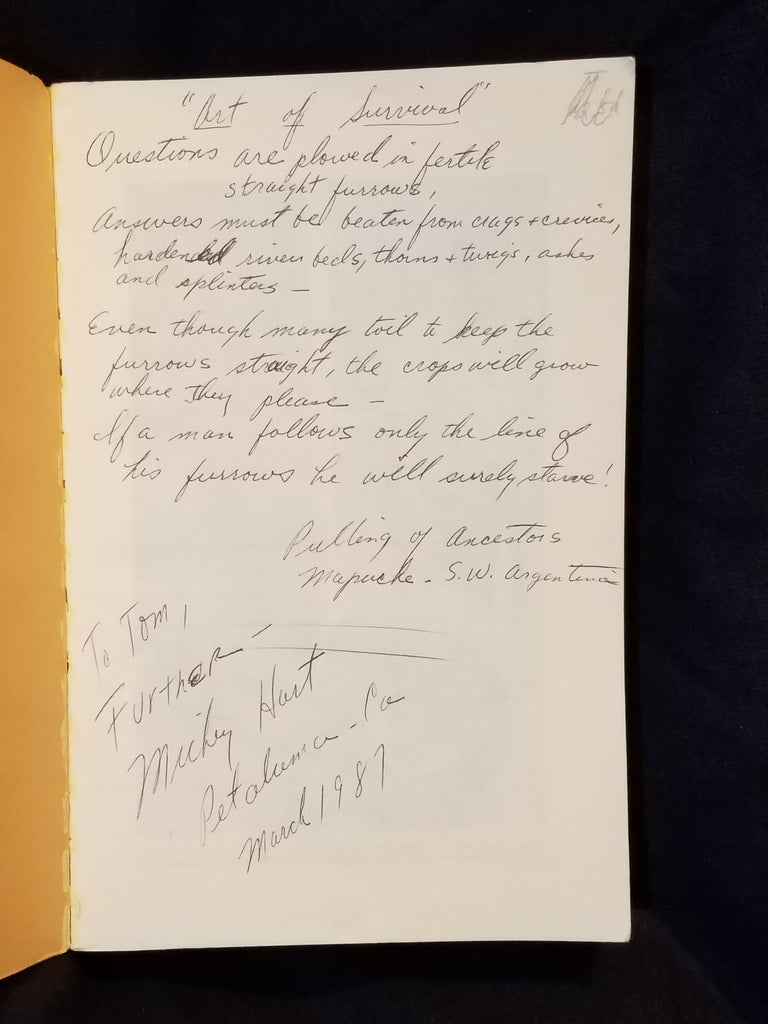 "Art of Survival"
Questions are plowed in fertile
straight furrows,
Answers must be beaten from crags + crevices,
hardened river beds, thorns + twigs, ashes
and splinters —
Even though many toil to keep the
furrows straight, the crops will grow
where they please —
If a man follows only the line of
his furrows he will surely starve!
Pulling of Ancestors
Mapuche - S.W. Argentina
To Tom,
Further —
Mickey Hart
Petaluma - Ca
March 1987